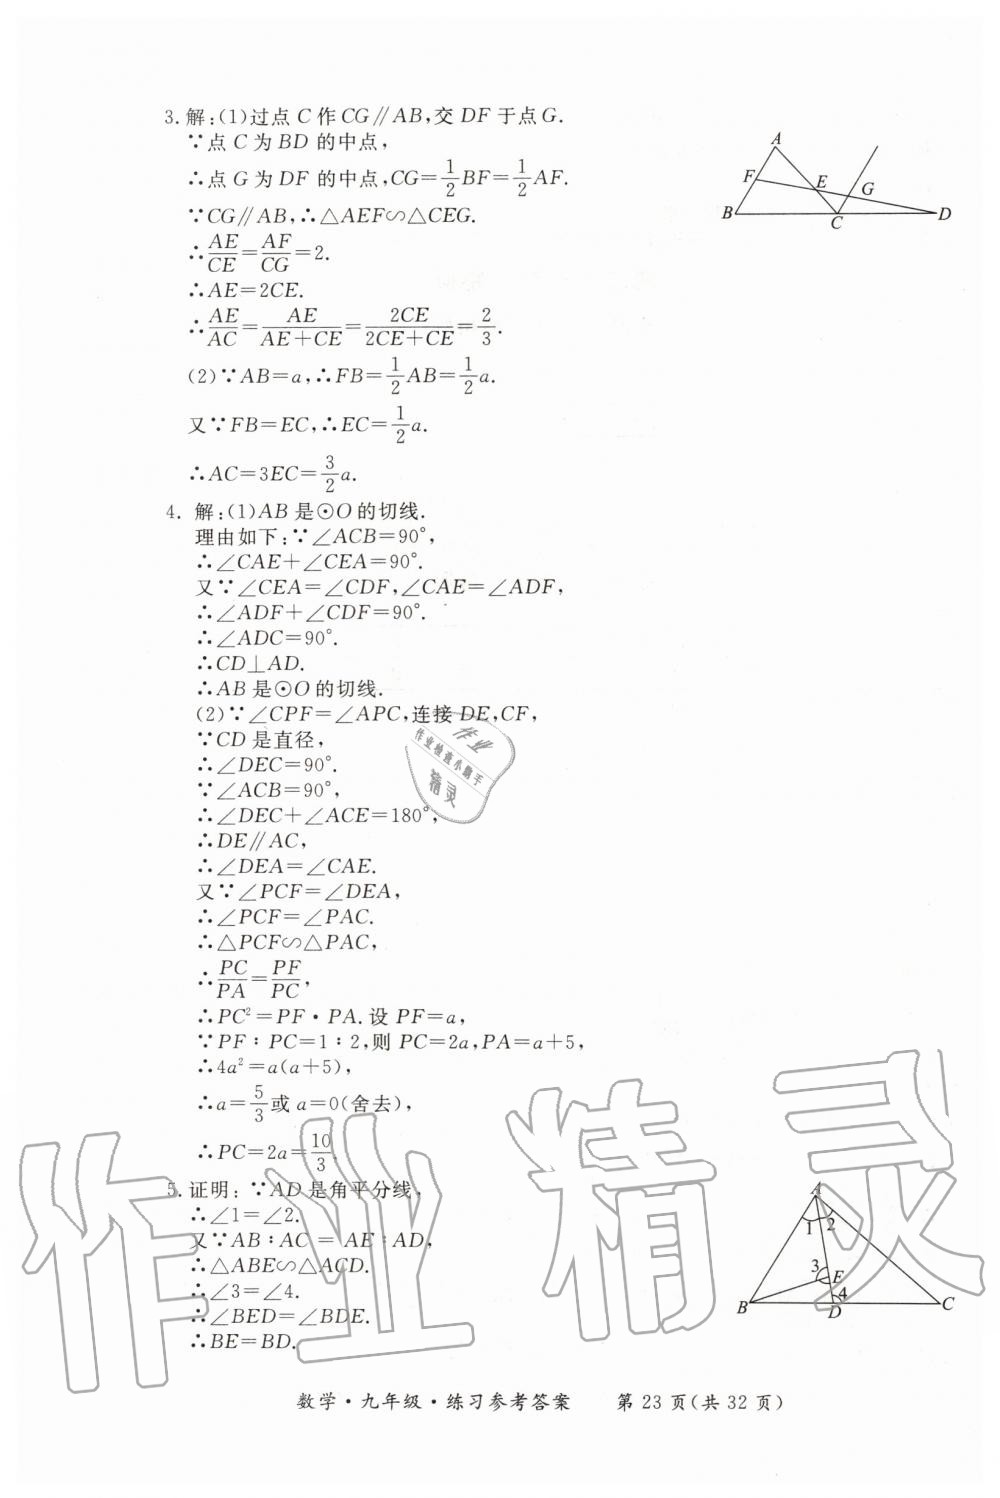 3. 解:(1)过点 C 作 CG∥AB,交 DF 于点 G.
∵点 C 为 BD 的中点,
∴点 G 为 DF 的中点,CG=1/2BF=1/2AF.
∵CG∥AB,∴△AEF∽△CEG.
∴AE/CE=AF/CG=2.
∴AE=2CE.
∴AE/AC=AE/(AE+CE)=2CE/(2CE+CE)=2/3.
(2)∵AB=a,∴FB=1/2AB=1/2a.
又∵FB=EC,∴EC=1/2a.
∴AC=3EC=3/2a.
A
F
E
G
B
C
D
4. 解:(1)AB 是⊙O 的切线.
理由如下:∵∠ACB=90°,
∴∠CAE+∠CEA=90°.
又∵∠CEA=∠CDF,∠CAE=∠ADF,
∴∠ADF+∠CDF=90°.
∴∠ADC=90°.
∴CD⊥AD.
∴AB 是⊙O 的切线.
(2)∵∠CPF=∠APC,连接 DE,CF,
∵CD 是直径,
∴∠DEC=90°.
∵∠ACB=90°,
∴∠DEC+∠ACE=180°,
∴DE∥AC,
∴∠DEA=∠CAE.
又∵∠PCF=∠DEA,
∴∠PCF=∠PAC.
∴△PCF∽△PAC,
∴PC/PA=PF/PC,
∴PC²=PF·PA.设 PF=a,
∵PF∶PC=1∶2,则 PC=2a,PA=a+5,
∴4a²=a(a+5),
∴a=5/3或 a=0(舍去),
∴PC=2a=10/3.
5. 证明:∵AD 是角平分线,
∴∠1=∠2.
又∵AB∶AC=AE∶AD,
∴△ABE∽△ACD.
∴∠3=∠4.
∴∠BED=∠BDE.
∴BE=BD.
A
1 2
3
E
4
B
D
C
作业
作业检查小帮手
精灵
作业精灵
数学·九年级·练习参考答案 第 23 页(共 32 页)